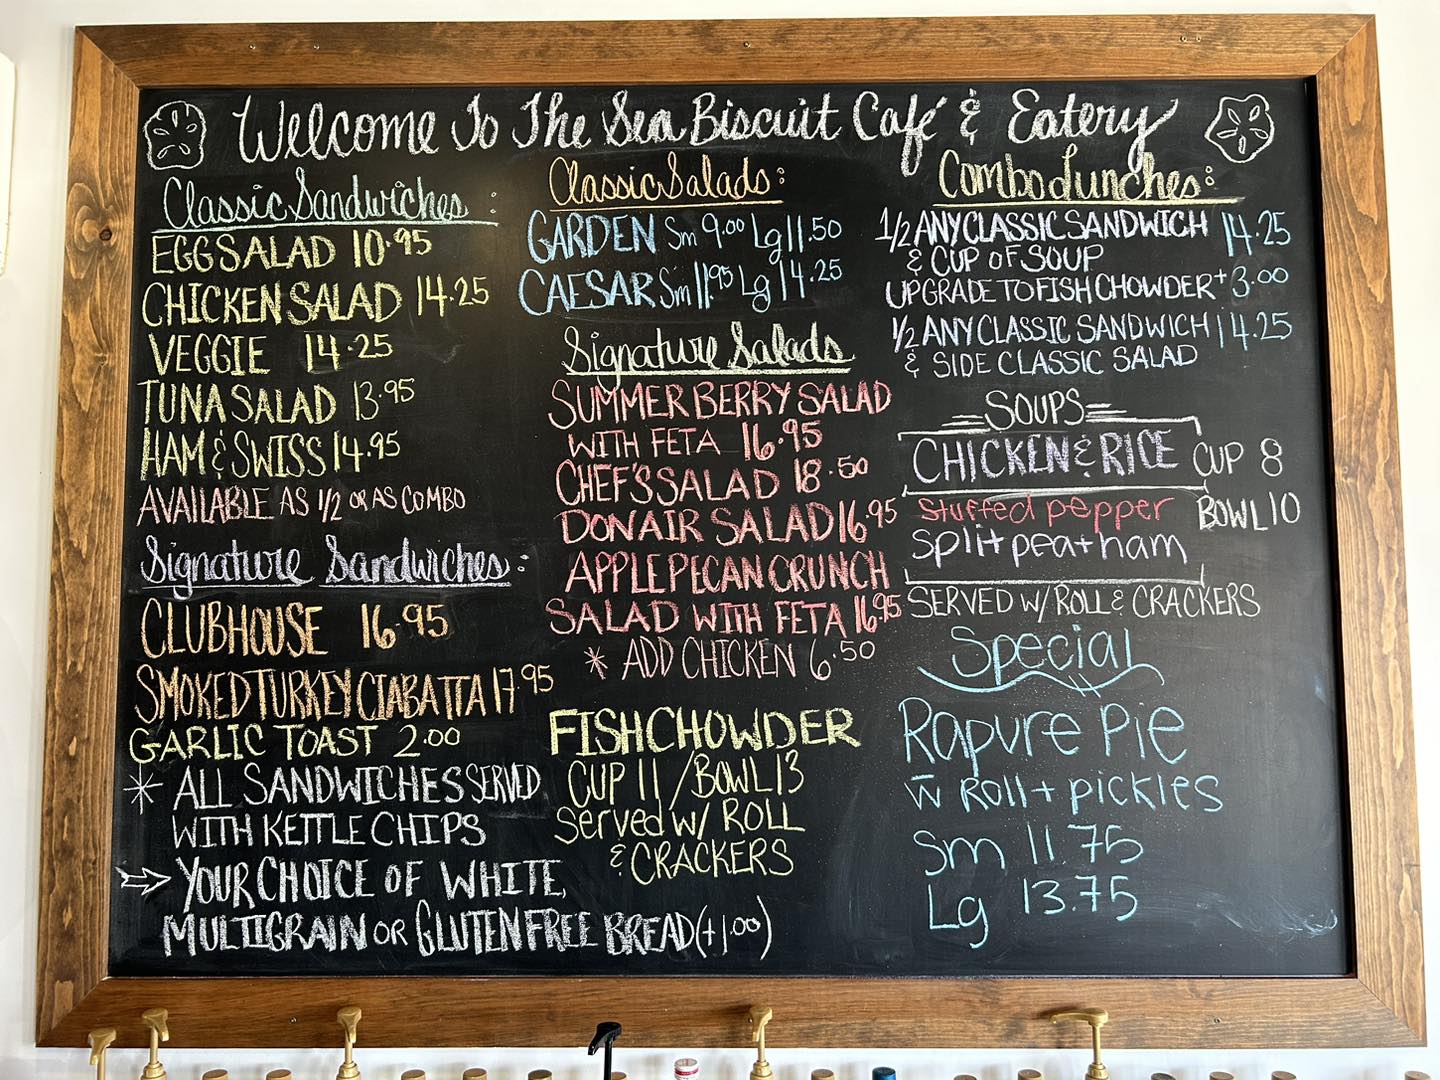 Welcome To The Sea Biscuit Café & Eatery
Classic Sandwiches:
EGG SALAD 10.95
CHICKEN SALAD 14.25
VEGGIE 14.25
TUNA SALAD 13.95
HAM & SWISS 14.95
AVAILABLE AS 1/2 OR AS COMBO
Signature Sandwiches:
CLUBHOUSE 16.95
SMOKED TURKEY CIABATTA 17.95
GARLIC TOAST 2.00
* ALL SANDWICHES SERVED
WITH KETTLE CHIPS
→ YOUR CHOICE OF WHITE,
MULTIGRAIN OR GLUTEN FREE BREAD (+1.00)
Classic Salads:
GARDEN Sm 9.00 Lg 11.50
CAESAR Sm 11.95 Lg 14.25
Signature Salads
SUMMER BERRY SALAD
WITH FETA 16.95
CHEF'S SALAD 18.50
DONAIR SALAD 16.95
APPLE PECAN CRUNCH
SALAD WITH FETA 16.95
* ADD CHICKEN 6.50
FISH CHOWDER
CUP 11 / BOWL 13
Served w/ ROLL
& CRACKERS
Combo Lunches:
1/2 ANY CLASSIC SANDWICH 14.25
& CUP OF SOUP
UPGRADE TO FISH CHOWDER + 3.00
1/2 ANY CLASSIC SANDWICH 14.25
& SIDE CLASSIC SALAD
SOUPS
CHICKEN & RICE CUP 8
Stuffed pepper BOWL 10
Split pea + ham
SERVED W/ ROLL & CRACKERS
Special
Rapure Pie
w̄ Roll + pickles
Sm 11.75
Lg 13.75